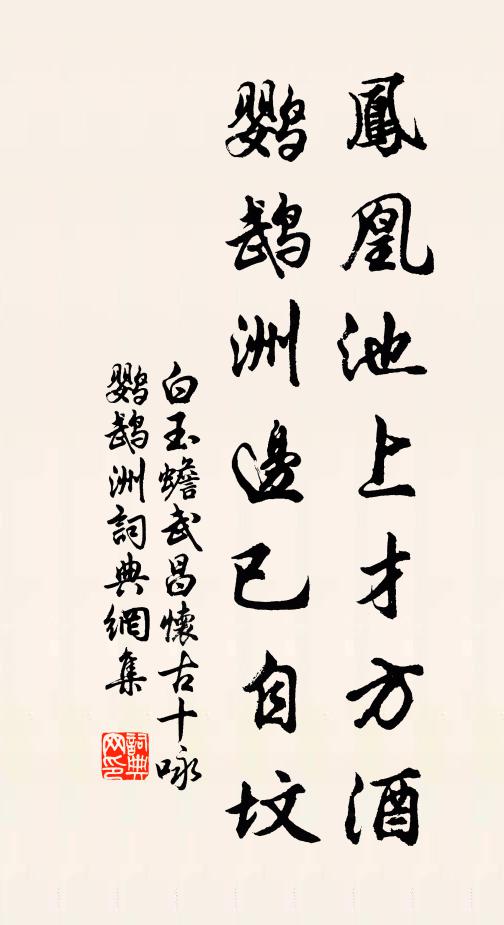 鳳凰池上才方酒
鹦鹉洲邊已自坟
白玉蟾武昌懷古十咏
鹦鹉洲詞典網集
詞典网印